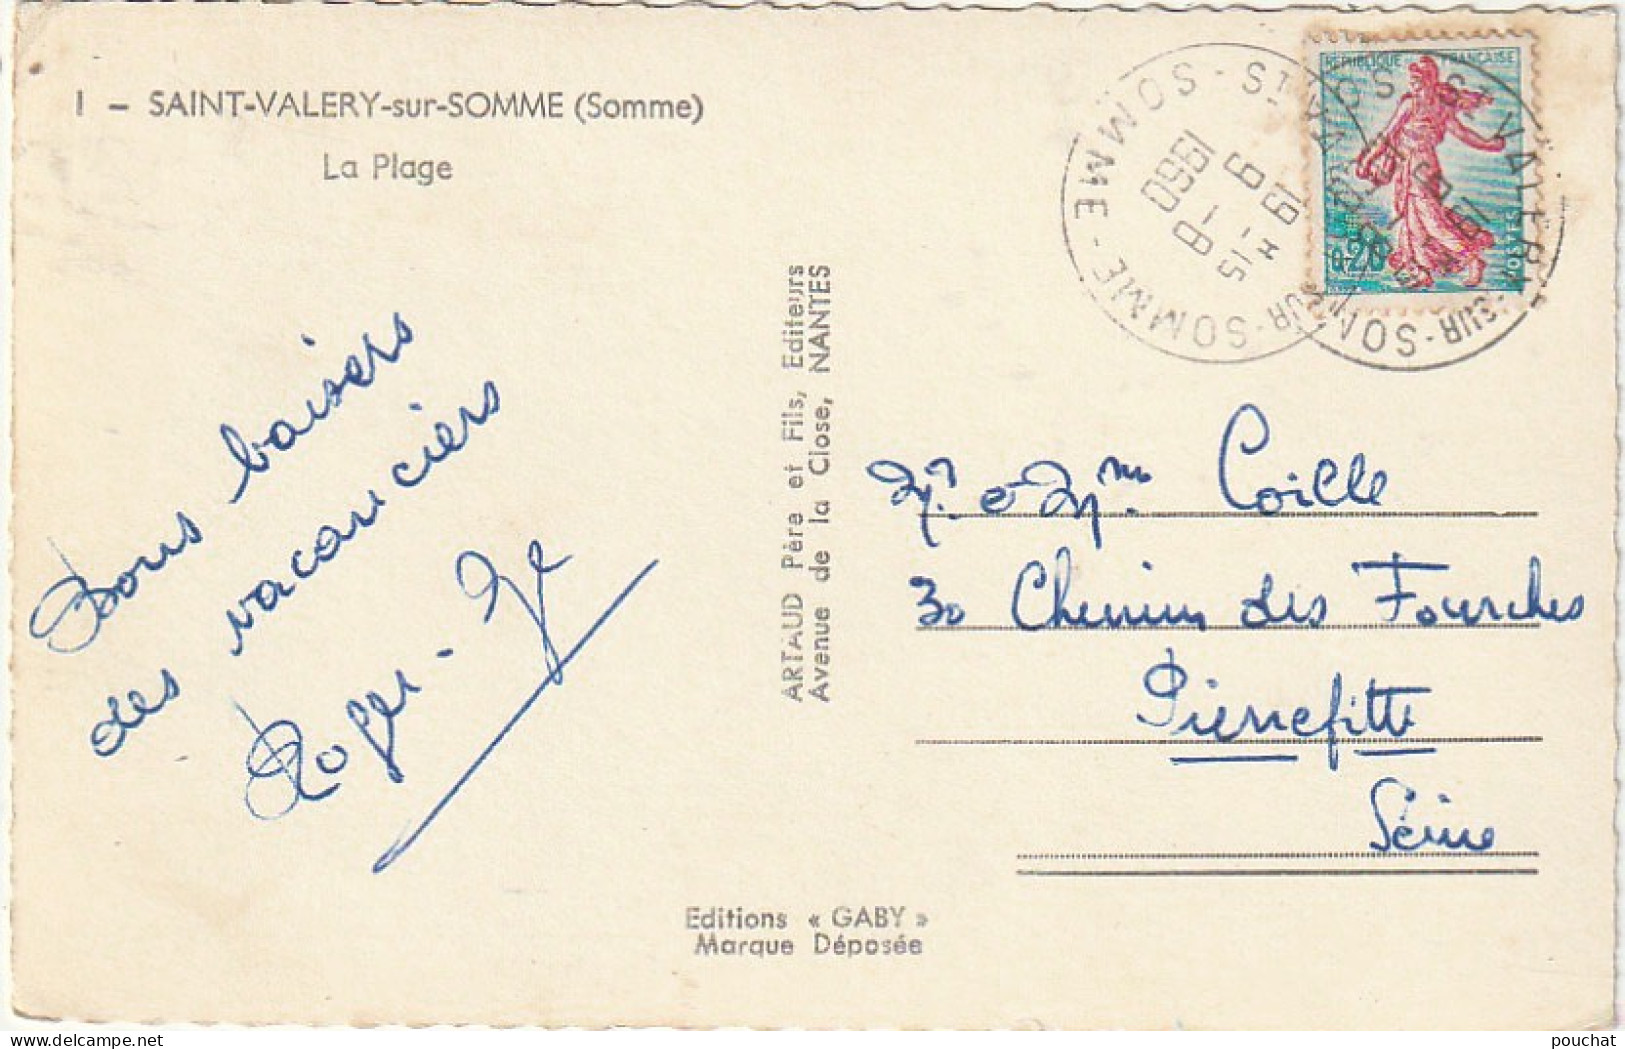 1 - SAINT-VALERY-sur-SOMME (Somme)
La Plage
Bons baisers
des vacanciers
Roger
ARTAUD Père et Fils, Editeurs
Avenue de la Close, NANTES
Editions « GABY »
Marque Déposée
ST VALERY-SUR-SOMME - SOMME
19 - 15
9 - 8
1960
REPUBLIQUE FRANÇAISE
0,20
POSTES
Mr. e Mme. Coille
30 Chemin des Fourches
Pierrefitte
Seine
delcampe.net
pouchat